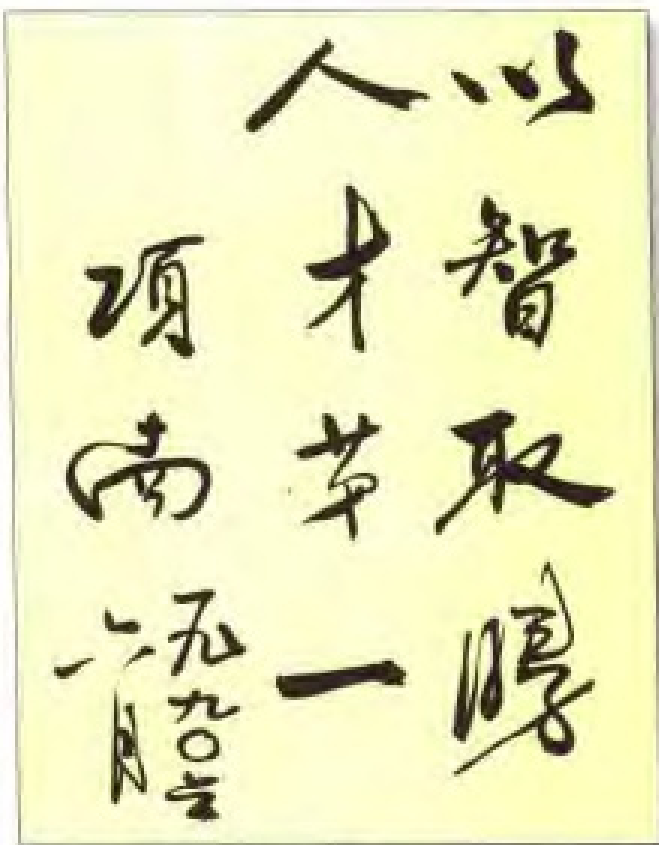 以智取勝
人才苐一
項南
一九九〇年
六月